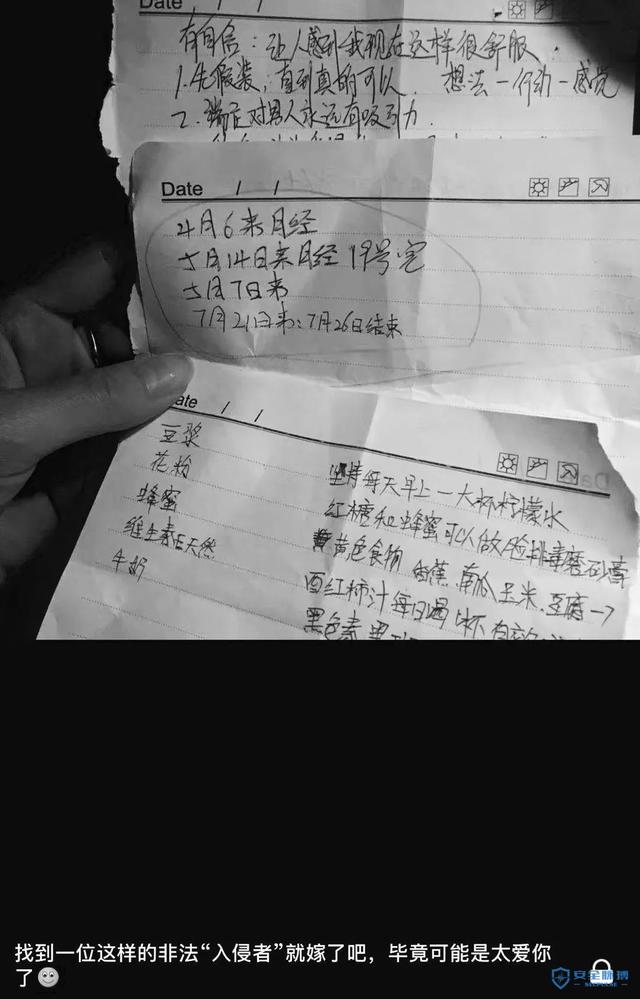 Date / /
有自信：让人感到我现在这样很舒服
1.先假装，直到真的可以. 想法－行动－感觉
2.端庄对男人永远有吸引力.
Date / /
4月6来月经
5月14日来月经 19号完
5月7日来
7月21日来；7月26日结束
ate / /
豆浆
花粉
蜂蜜
维生素E天然
牛奶
坚持每天早上一大杯柠檬水
红糖和蜂蜜可以做脸排毒磨砂膏
黄色食物 香蕉.南瓜.玉米.豆腐
西红柿汁每日喝
黑色素
找到一位这样的非法“入侵者”就嫁了吧，毕竟可能是太爱你
了
安全脉搏